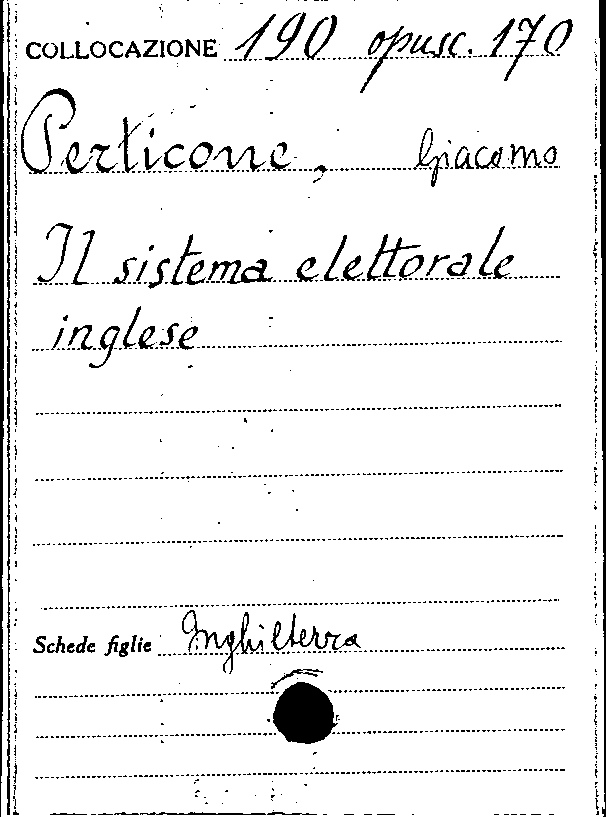 COLLOCAZIONE 190 opusc. 170
Perticone, Giacomo
Il sistema elettorale
inglese
Schede figlie Inghilterra